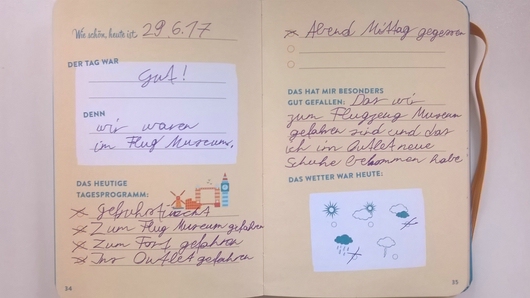 Wie schön, heute ist 29.6.17
DER TAG WAR
Gut!
DENN
wir waren
im Flug Museum.
DAS HEUTIGE
TAGESPROGRAMM:
x gefrühstückt
x Zum Flug Museum gefahren
x Zum Fort gefahren
x Ins Outlet gefahren
34
x Abend Mittag gegessen
DAS HAT MIR BESONDERS
GUT GEFALLEN: Das wir
zum Flugzeug Museum
gefahren sind und das
ich im Outlet neue
Schuhe bekommen habe
DAS WETTER WAR HEUTE:
35